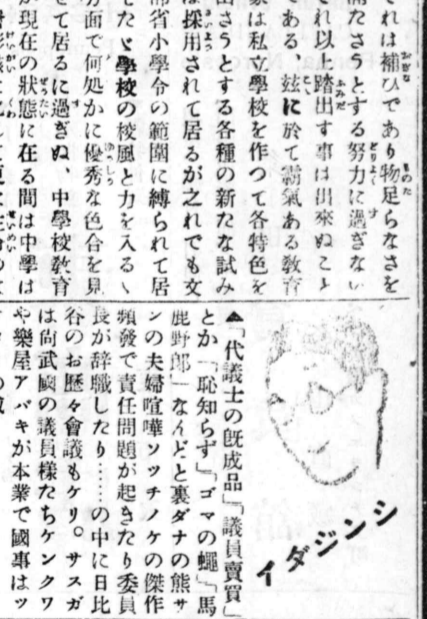 それは補ひであり物足らなさを
満たさうとする努力に過ぎない
それ以上踏出す事は出來ぬこと
である、玆に於て霸氣ある敎育
家は私立學校を作つて各特色を
出さうとする各種の新たな試み
は採用されて居るが之れでも文
部省小學令の範圍に縛られて居
たゞ學校の校風と力を入るゝ
方面で何処かに優秀な色合を見
せて居るに過ぎぬ、中學校敎育
が現在の狀態に在る間は中學は
シンジダイ
▲「代議士の旣成品」「議員賣買」
とか「恥知らず」「ゴマの蠅」「馬
鹿野郎」なんどと裏ダナの熊サ
ンの夫婦喧嘩ソツチノケの傑作
頻發で責任問題が起きたり委員
長が辞職したり……の中に日比
谷のお歷々會議もケリ。サスガ
は尙武國の議員様たちケンクワ
や樂屋アバキが本業で國事はツ